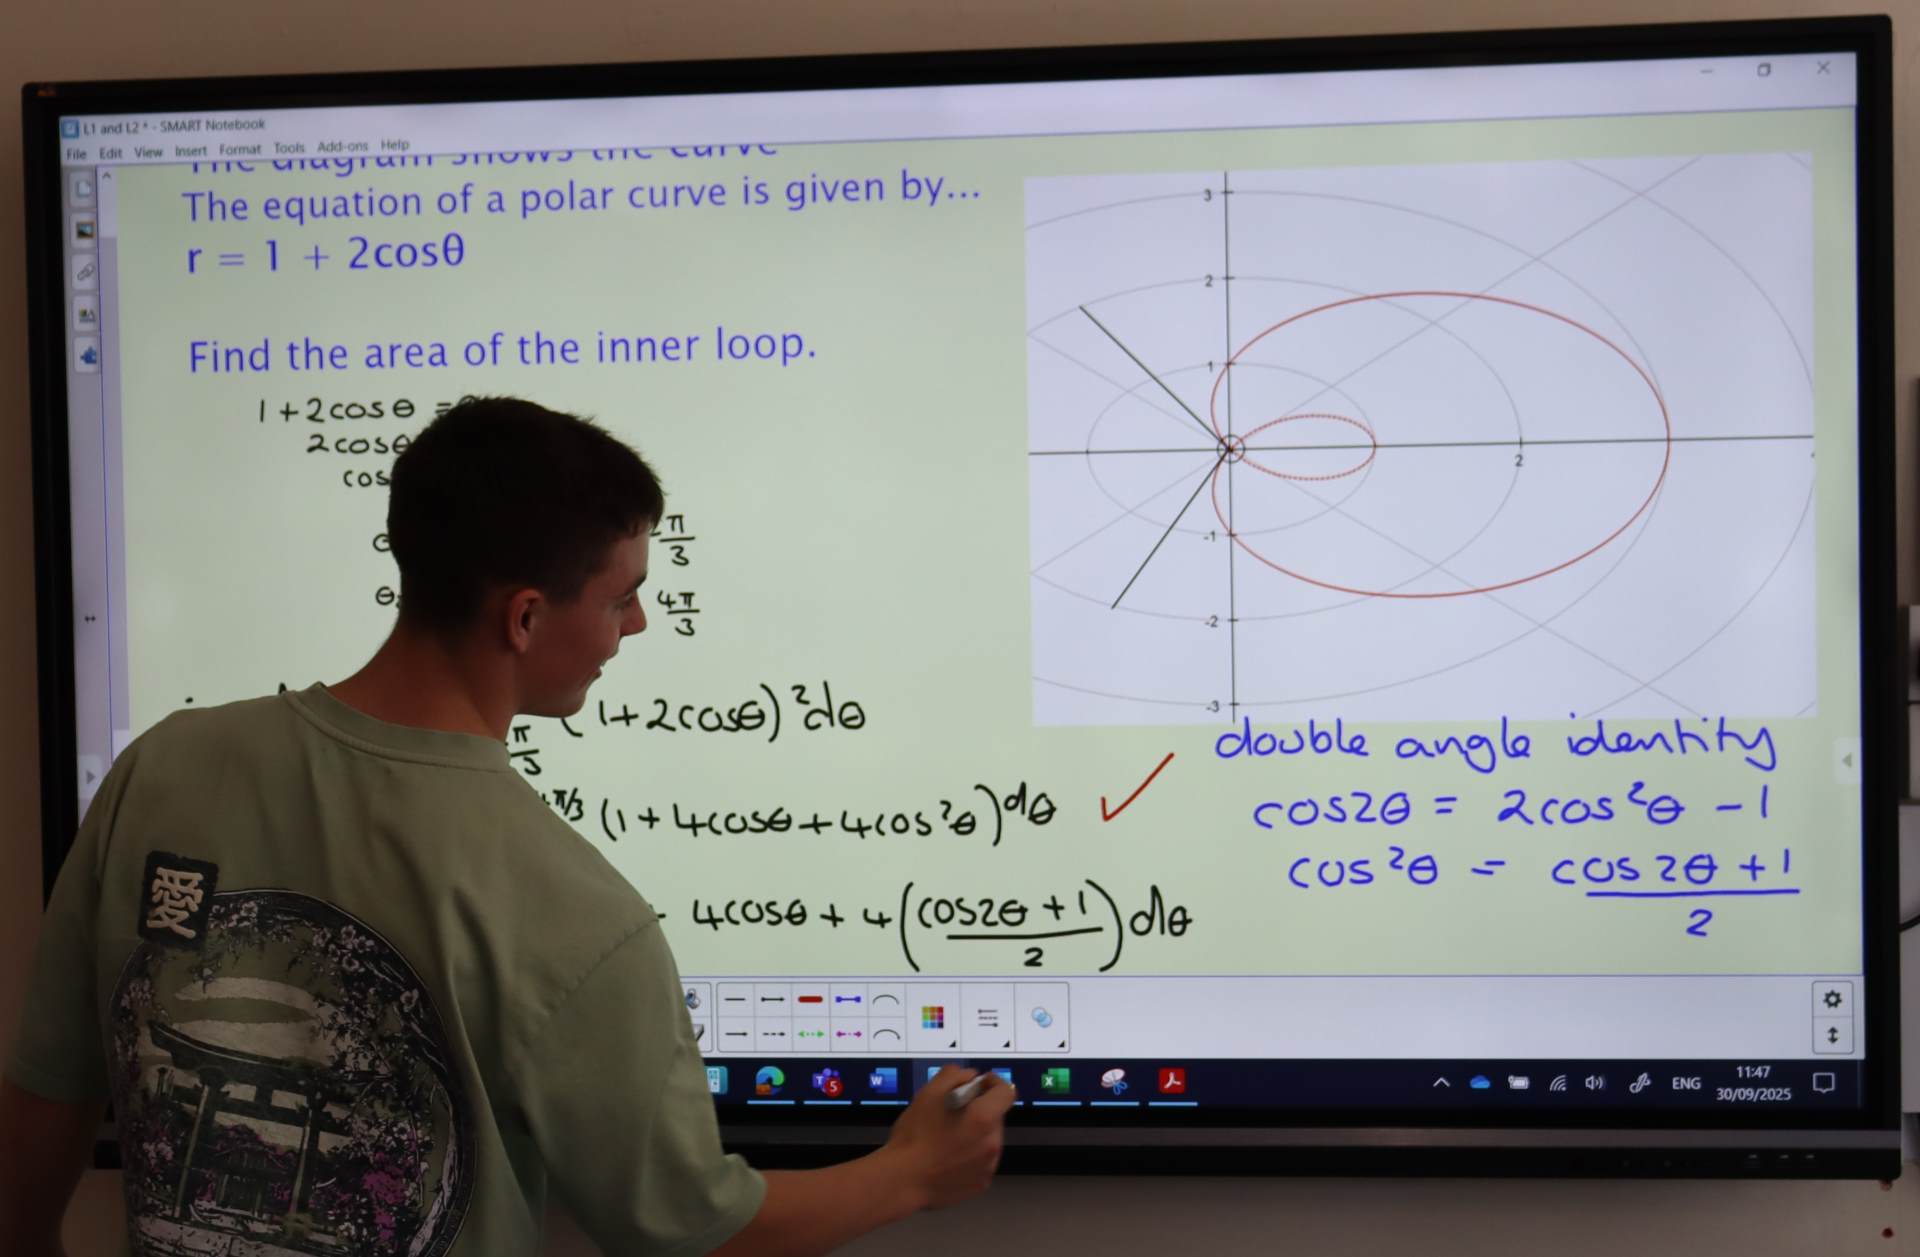 L1 and L2 * - SMART Notebook
File Edit View Insert Format Tools Add-ons Help
The diagram shows the curve
The equation of a polar curve is given by...
r = 1 + 2cosθ
Find the area of the inner loop.
1 + 2cosθ =
2cosθ
cos
2π/3
θ
4π/3
(1+2cosθ)²dθ
π/3 (1+4cosθ+4cos²θ)dθ ✓
4cosθ + 4((cos2θ +1)/2)dθ
3
2
1
-1
-2
-3
2
double angle identity
cos2θ = 2cos²θ - 1
cos²θ = (cos2θ + 1)/2
愛
5
W
X
ENG
11:47
30/09/2025